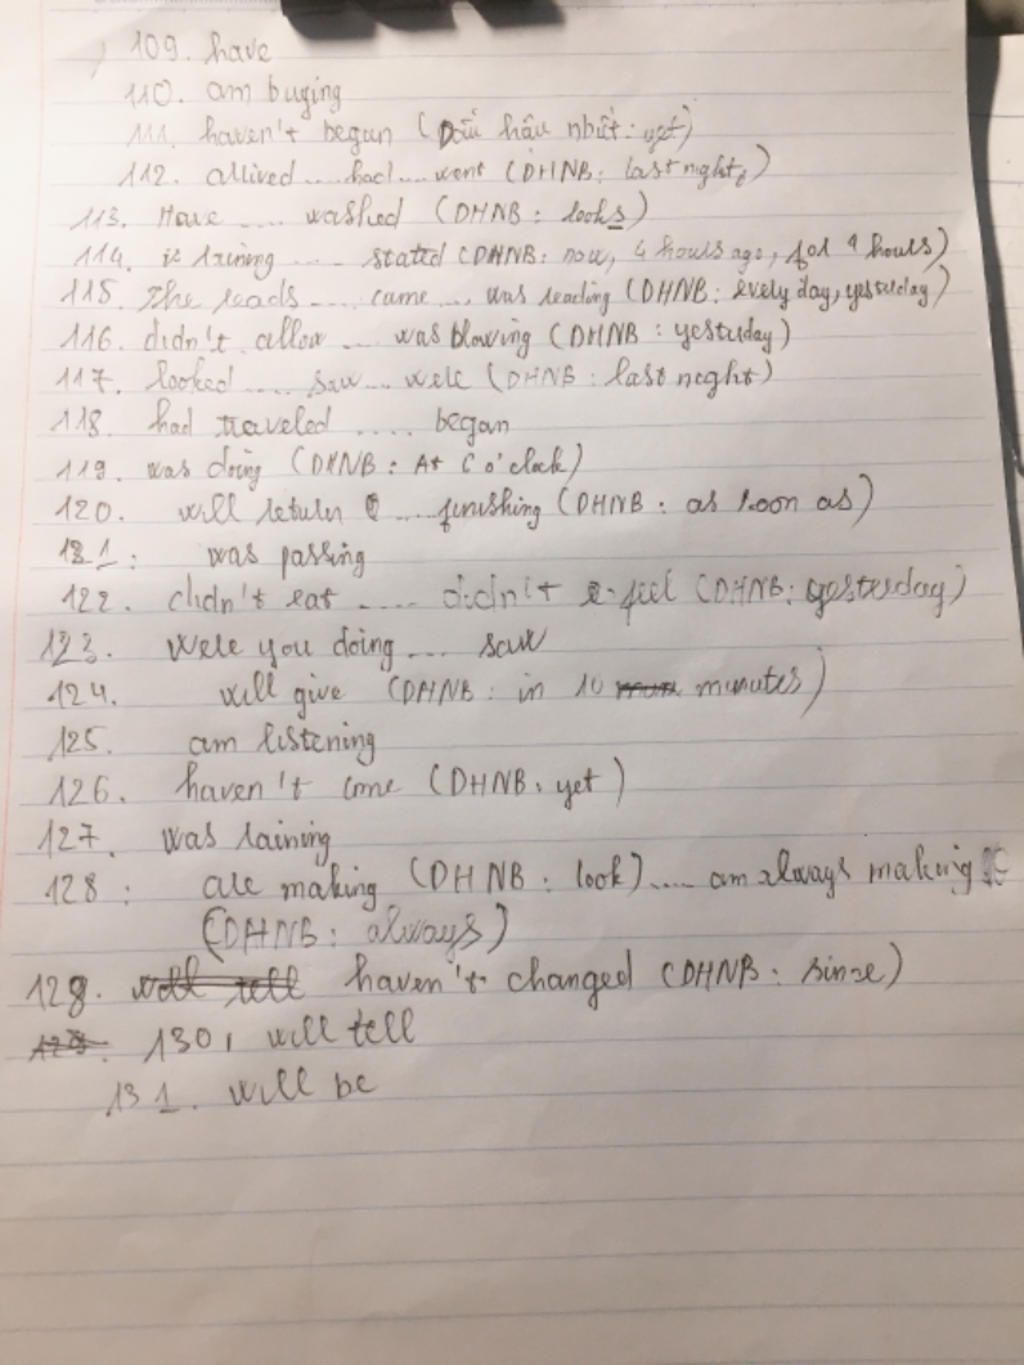 109. have
110. am buying
111. haven't began (Dấu hậu nhiệt: yet)
112. arrived .... had .... went (DHNB: last night)
113. Have .... washed (DHNB: looks)
114. is raining .... stated (DHNB: now, 4 hours ago, for 4 hours)
115. The reads .... came .... was reading (DHNB: every day, yesterday)
116. didn't allow .... was blowing (DHNB: yesterday)
117. looked .... saw .... were (DHNB: last night)
118. had traveled .... began
119. was doing (DHNB: At 6 o'clock)
120. will return .... finishing (DHNB: as soon as)
121: was passing
122. didn't eat .... didn't feel (DHNB: yesterday)
123. Were you doing .... saw
124. will give (DHNB: in 10 minutes)
125. am listening
126. haven't come (DHNB: yet)
127. was raining
128: are making (DHNB: look) .... am always making
(DHNB: always)
129. will tell haven't changed (DHNB: since)
129. 130, will tell
131. will be